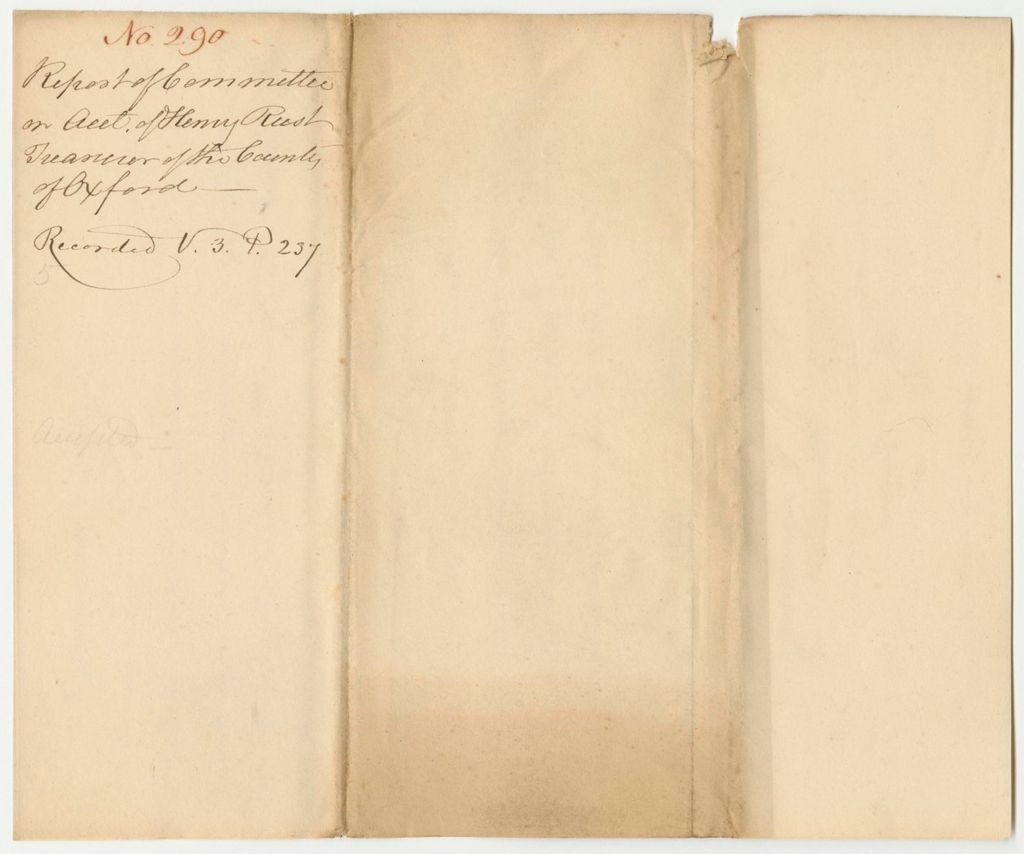 No 290
Report of Committee
on Acct. of Henry Rust
Treasurer of the County
of Oxford —
Recorded V. 3. P. 237
5
Accepted —